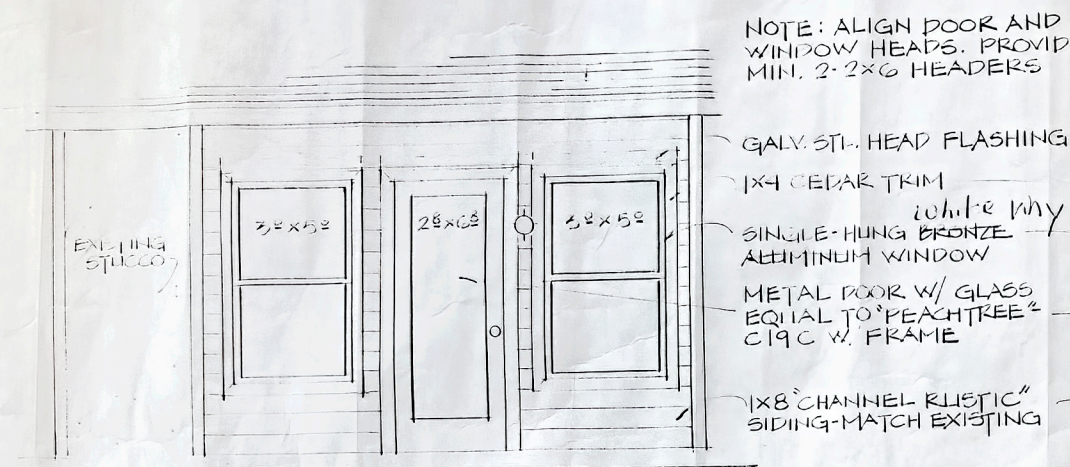 NOTE: ALIGN DOOR AND
WINDOW HEADS. PROVID
MIN. 2-2x6 HEADERS
GALV. STL. HEAD FLASHING
1x4 CEDAR TRIM
white
SINGLE-HUNG BRONZE
ALUMINUM WINDOW
METAL DOOR W/ GLASS
EQUAL TO "PEACHTREE"
C19C W. FRAME
1x8 "CHANNEL RUSTIC"
SIDING-MATCH EXISTING
EXISTING
STUCCO
3⁰ x 5⁰
2⁸ x 6⁸
3⁰ x 5⁰